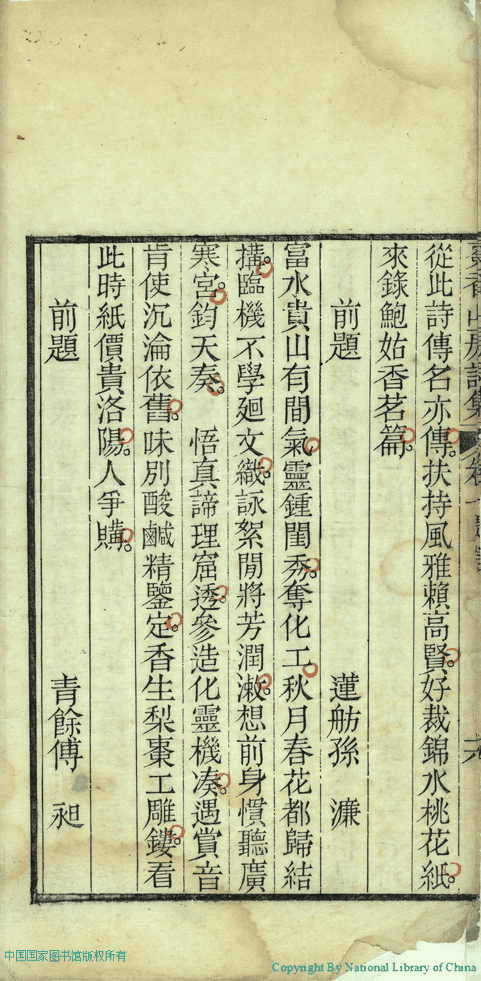 從此詩傳名亦傳。扶持風雅賴高賢。好裁錦水桃花紙。
來錄鮑姑香茗篇。
前題 蓮舫孫 濂
富水貴山有間氣。靈鍾閨秀。奪化工。秋月春花都歸結
搆。臨機不學廻文織。詠絮閒將芳潤漱。想前身慣聽廣
寒宮。鈞天奏。 悟真諦理窟透。參造化靈機湊。遇賞音
肯使沉淪依舊。味別酸鹹精鑒定。香生梨棗工雕鏤。看
此時紙價貴洛陽。人爭購。
前題 青餘傅 昶
中国国家图书馆版权所有
Copyright By National Library of China